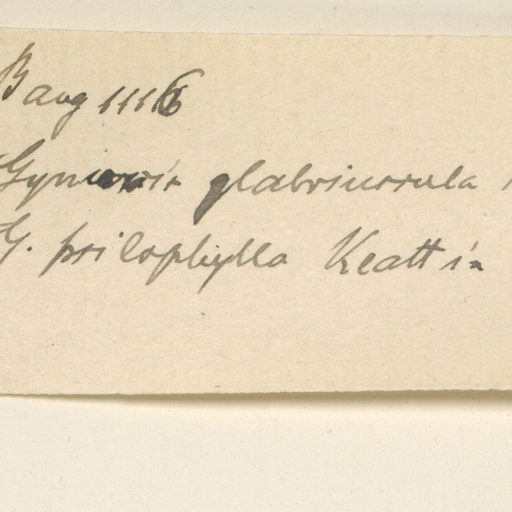 B aug 1116
Gymnosis glabriuscula
G. psilophylla Keatt in